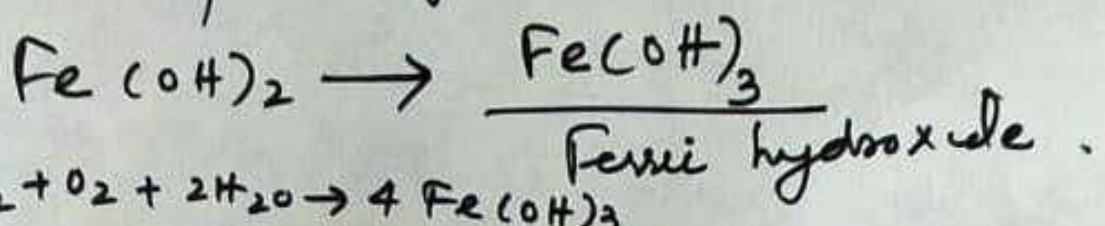 Fe (OH)2 → Fe(OH)3
Ferri hydroxide .
+ O2 + 2H2O → 4 Fe(OH)3